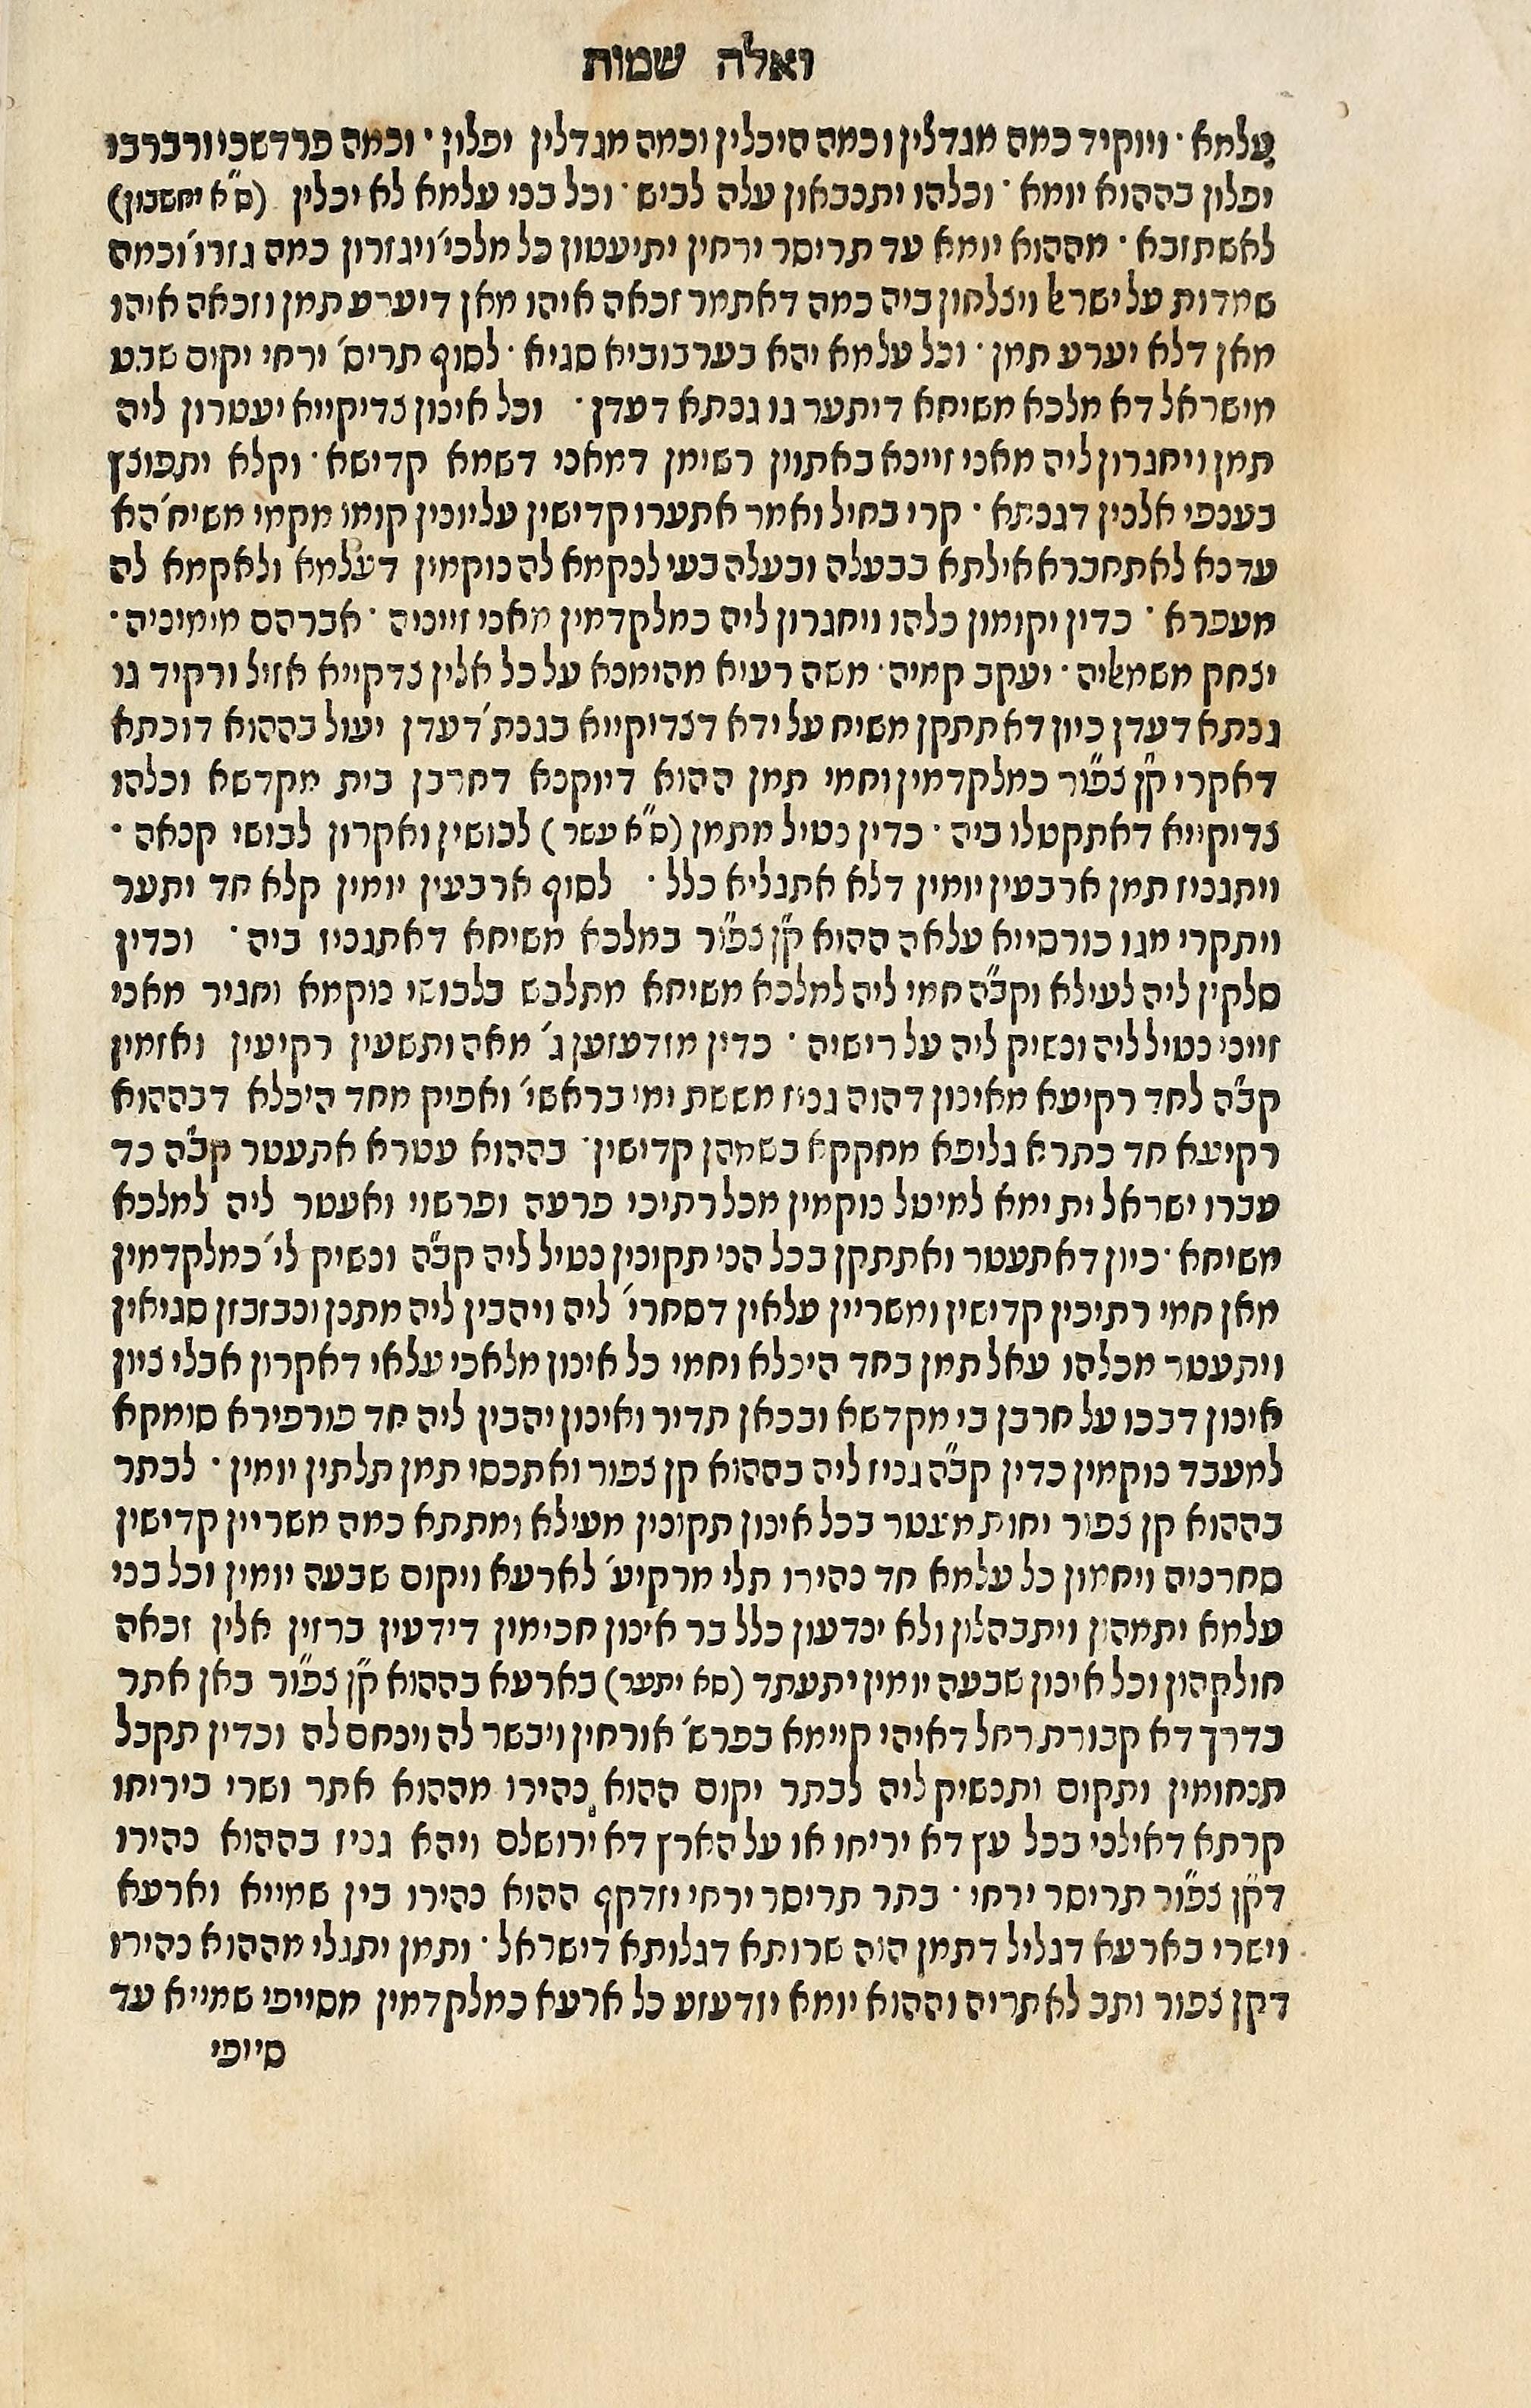 ואלה שמות
עלמא · ויוקיד כמה מגדלין וכמה היכלין וכמה מגדלין יפלון · וכמה פרדשכי ורברבי
יפלון בההוא יומא · וכלהו יתכנאון עלה לביש · וכל בני עלמא לא יכלין (ס"א יחשבון)
לאשתזבא · מההוא יומא עד תריסר ירחין יתיעטון כל מלכי' ויגזרון כמה גזרו' וכמה
שמדות על ישראל ויצלחון ביה כמה דאתמר זכאה איהו מאן דיערע תמן וזכאה איהו
מאן דלא יערע תמן · וכל עלמא יהא בערבוביא סגיא · לסוף תריס' ירחי יקום שבט
מישראל דא מלכא משיחא דיתער גו גנתא דעדן · וכל אינון צדיקייא יעטרון ליה
תמן ויחגרון ליה מאני זיינא באתוון רשימן דמאני דשמא קדישא · וקלא יתפוצץ
בענפי אלנין דגנתא · קרי בחיל ואמר אתערו קדישין עליונין קומו מקמי משיח' הא
עדנא לאתחברא אילתא בבעלה ובעלה בעי לנקמא לה נוקמין דעלמא ולאקמא לה
מעפרא · כדין יקומון כלהו ויחגרון ליה כמלקדמין מאני זייניה · אברהם מימיניה ·
יצחק משמאליה · יעקב קמיה · משה רעיא מהימנא על כל אלין צדקייא אזיל ורקיד גו
גנתא דעדן כיון דאתתקן משיח על ידא דצדיקייא בגנת' דעדן יעול בההוא דוכתא
דאקרי ק"ן צפ"ור כמלקדמין וחמי תמן ההוא דיוקנא דחרבן בית מקדשא וכלהו
צדיקייא דאתקטלו ביה · כדין נטיל מתמן (ס"א עשר) לבושין ואקרון לבושי קנאה ·
ויתגניז תמן ארבעין יומין דלא אתגליא כלל · לסוף ארבעין יומין קלא חד יתער
ויתקרי מגו כורסייא עלאה ההוא ק"ן צפ"ור במלכא משיחא דאתגניז ביה · וכדין
סלקין ליה לעילא וקב"ה חמי ליה למלכא משיחא מתלבש בלבושי נוקמא וחגיר מאני
זייני נטיל ליה ונשיק ליה על רישיה · כדין מזדעזען ג' מאה ותשעין רקיעין ואזמין
קב"ה לחד רקיעא מאינון דהוה גניז מששת ימי בראשי' ואפיק מחד היכלא דבההוא
רקיעא חד כתרא גליפא מחקקא בשמהן קדישין · בההוא עטרא אתעטר קב"ה כד
עברו ישראל ית ימא למיטל נוקמין מכל רתיכי פרעה ופרשוי ואעטר ליה למלכא
משיחא · כיון דאתעטר ואתתקן בכל הני תקונין נטיל ליה קב"ה ונשיק לי' כמלקדמין
מאן חמי רתיכין קדישין ומשריין עלאין דסחרי' ליה ויהבין ליה מתנן ונבזבזן סגיאין
ויתעטר מכלהו עאל תמן בחד היכלא וחמי כל אינון מלאכי עלאי דאקרון אבלי ציון
אינון דבכו על חרבן בי מקדשא ובכאן תדיר ואינון יהבין ליה חד פורפירא סומקא
למעבד נוקמין כדין קב"ה גניז ליה בההוא קן צפור ואתכסי תמן תלתין יומין · לבתר
בההוא קן צפור יחות מעטר בכל אינון תקונין מעילא ומתתא כמה משריין קדישין
סחרניה ויחמון כל עלמא חד נהירו תלי מרקיע' לארעא ויקום שבעה יומין וכל בני
עלמא יתמהון ויתבהלון ולא ינדעון כלל בר אינון חכימין דידעין ברזין אלין זכאה
חולקהון וכל אינון שבעה יומין יתעתד (סא יתער) בארעא בההוא ק"ן צפ"ור באן אתר
בדרך דא קבורת רחל דאיהי קיימא בפרש' אורחין ויבשר לה וינחם לה וכדין תקבל
תנחומין ותקום ותנשיק ליה לבתר יקום ההוא נהירו מההוא אתר ושרי ביריחו
קרתא דאילני בכל עץ דא יריחו או על הארץ דא ירושלם ויהא גניז בההוא נהירו
דק"ן צפ"ור תריסר ירחי · בתר תריסר ירחי יזדקף ההוא נהירו בין שמייא וארעא
וישרי בארעא דגליל דתמן הוה שרותא דגלותא דישראל · ותמן יתגלי מההוא נהירו
דקן צפור ותב לאתריה וההוא יומא יזדעזע כל ארעא כמלקדמין מסייפי שמייא עד
סיופי